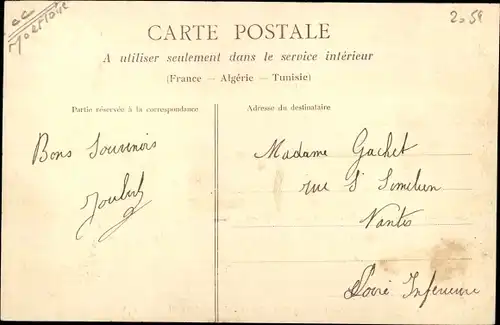 CC
2.59
CARTE POSTALE
A utiliser seulement dans le service intérieur
(France — Algérie — Tunisie)
Partie réservée à la correspondance
Adresse du destinataire
Bons Souvenirs
Madame Gachet
rue St Similien
Nantes
Loire Inferieure